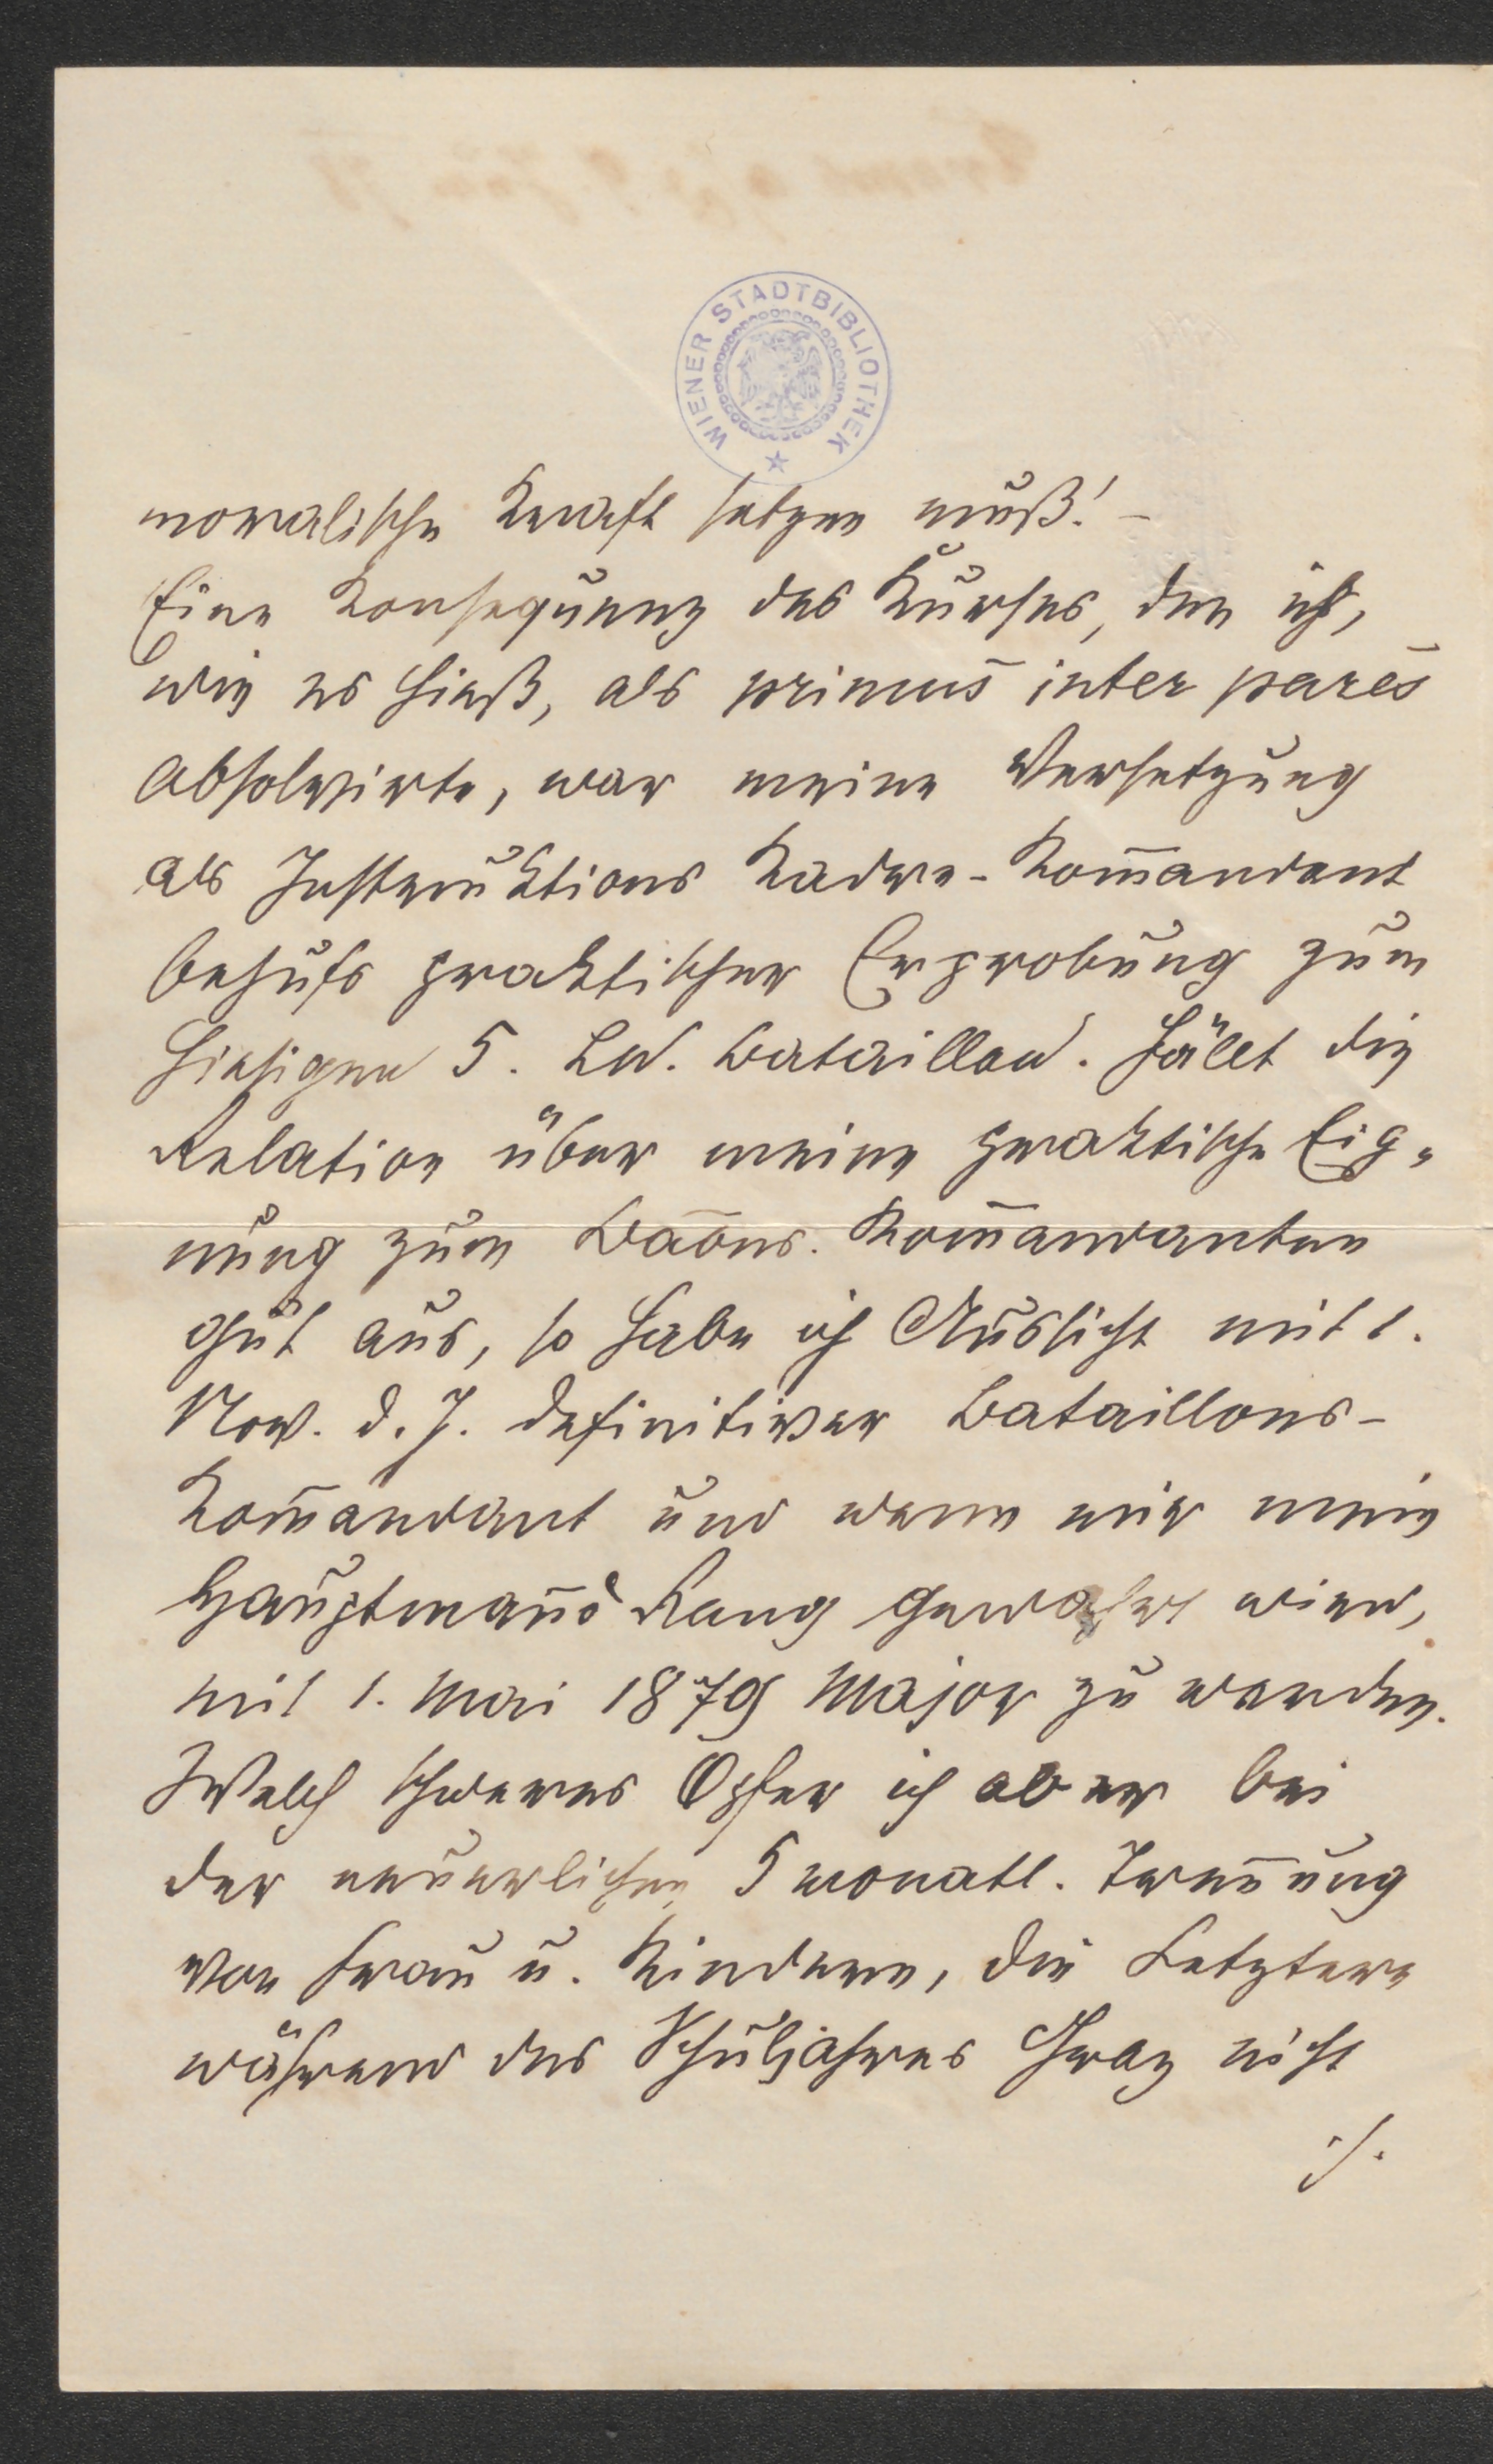 WIENER STADTBIBLIOTHEK
moralische Kraft setzen muß! –
Eine Konsequenz des Kurses, den ich,
wie es hieß, als primus inter pares
absolvirte, war meine Versetzung
als Instruktions Kadre-Kom̄andant
behufs praktischer Erprobung zum
hiesigen 5. LW. Bataillon. Fällt die
Relation über meine praktische Eig„
nung zum Baōns. Kom̄andanten
gut aus, so habe ich Aussicht mit 1.
Nov. d. J. definitiver Bataillons-
Kom̄andant und wenn mir mein
Hauptman̄s Rang gewahrt wird,
mit 1. Mai 1879 Major zu werden.
Welch schweres Opfer ich aber bei
der neuerlichen 5 monatl. Tren̄ung
von Frau u. Kindern, die Letztere
während des Schuljahres Graz nicht
./.